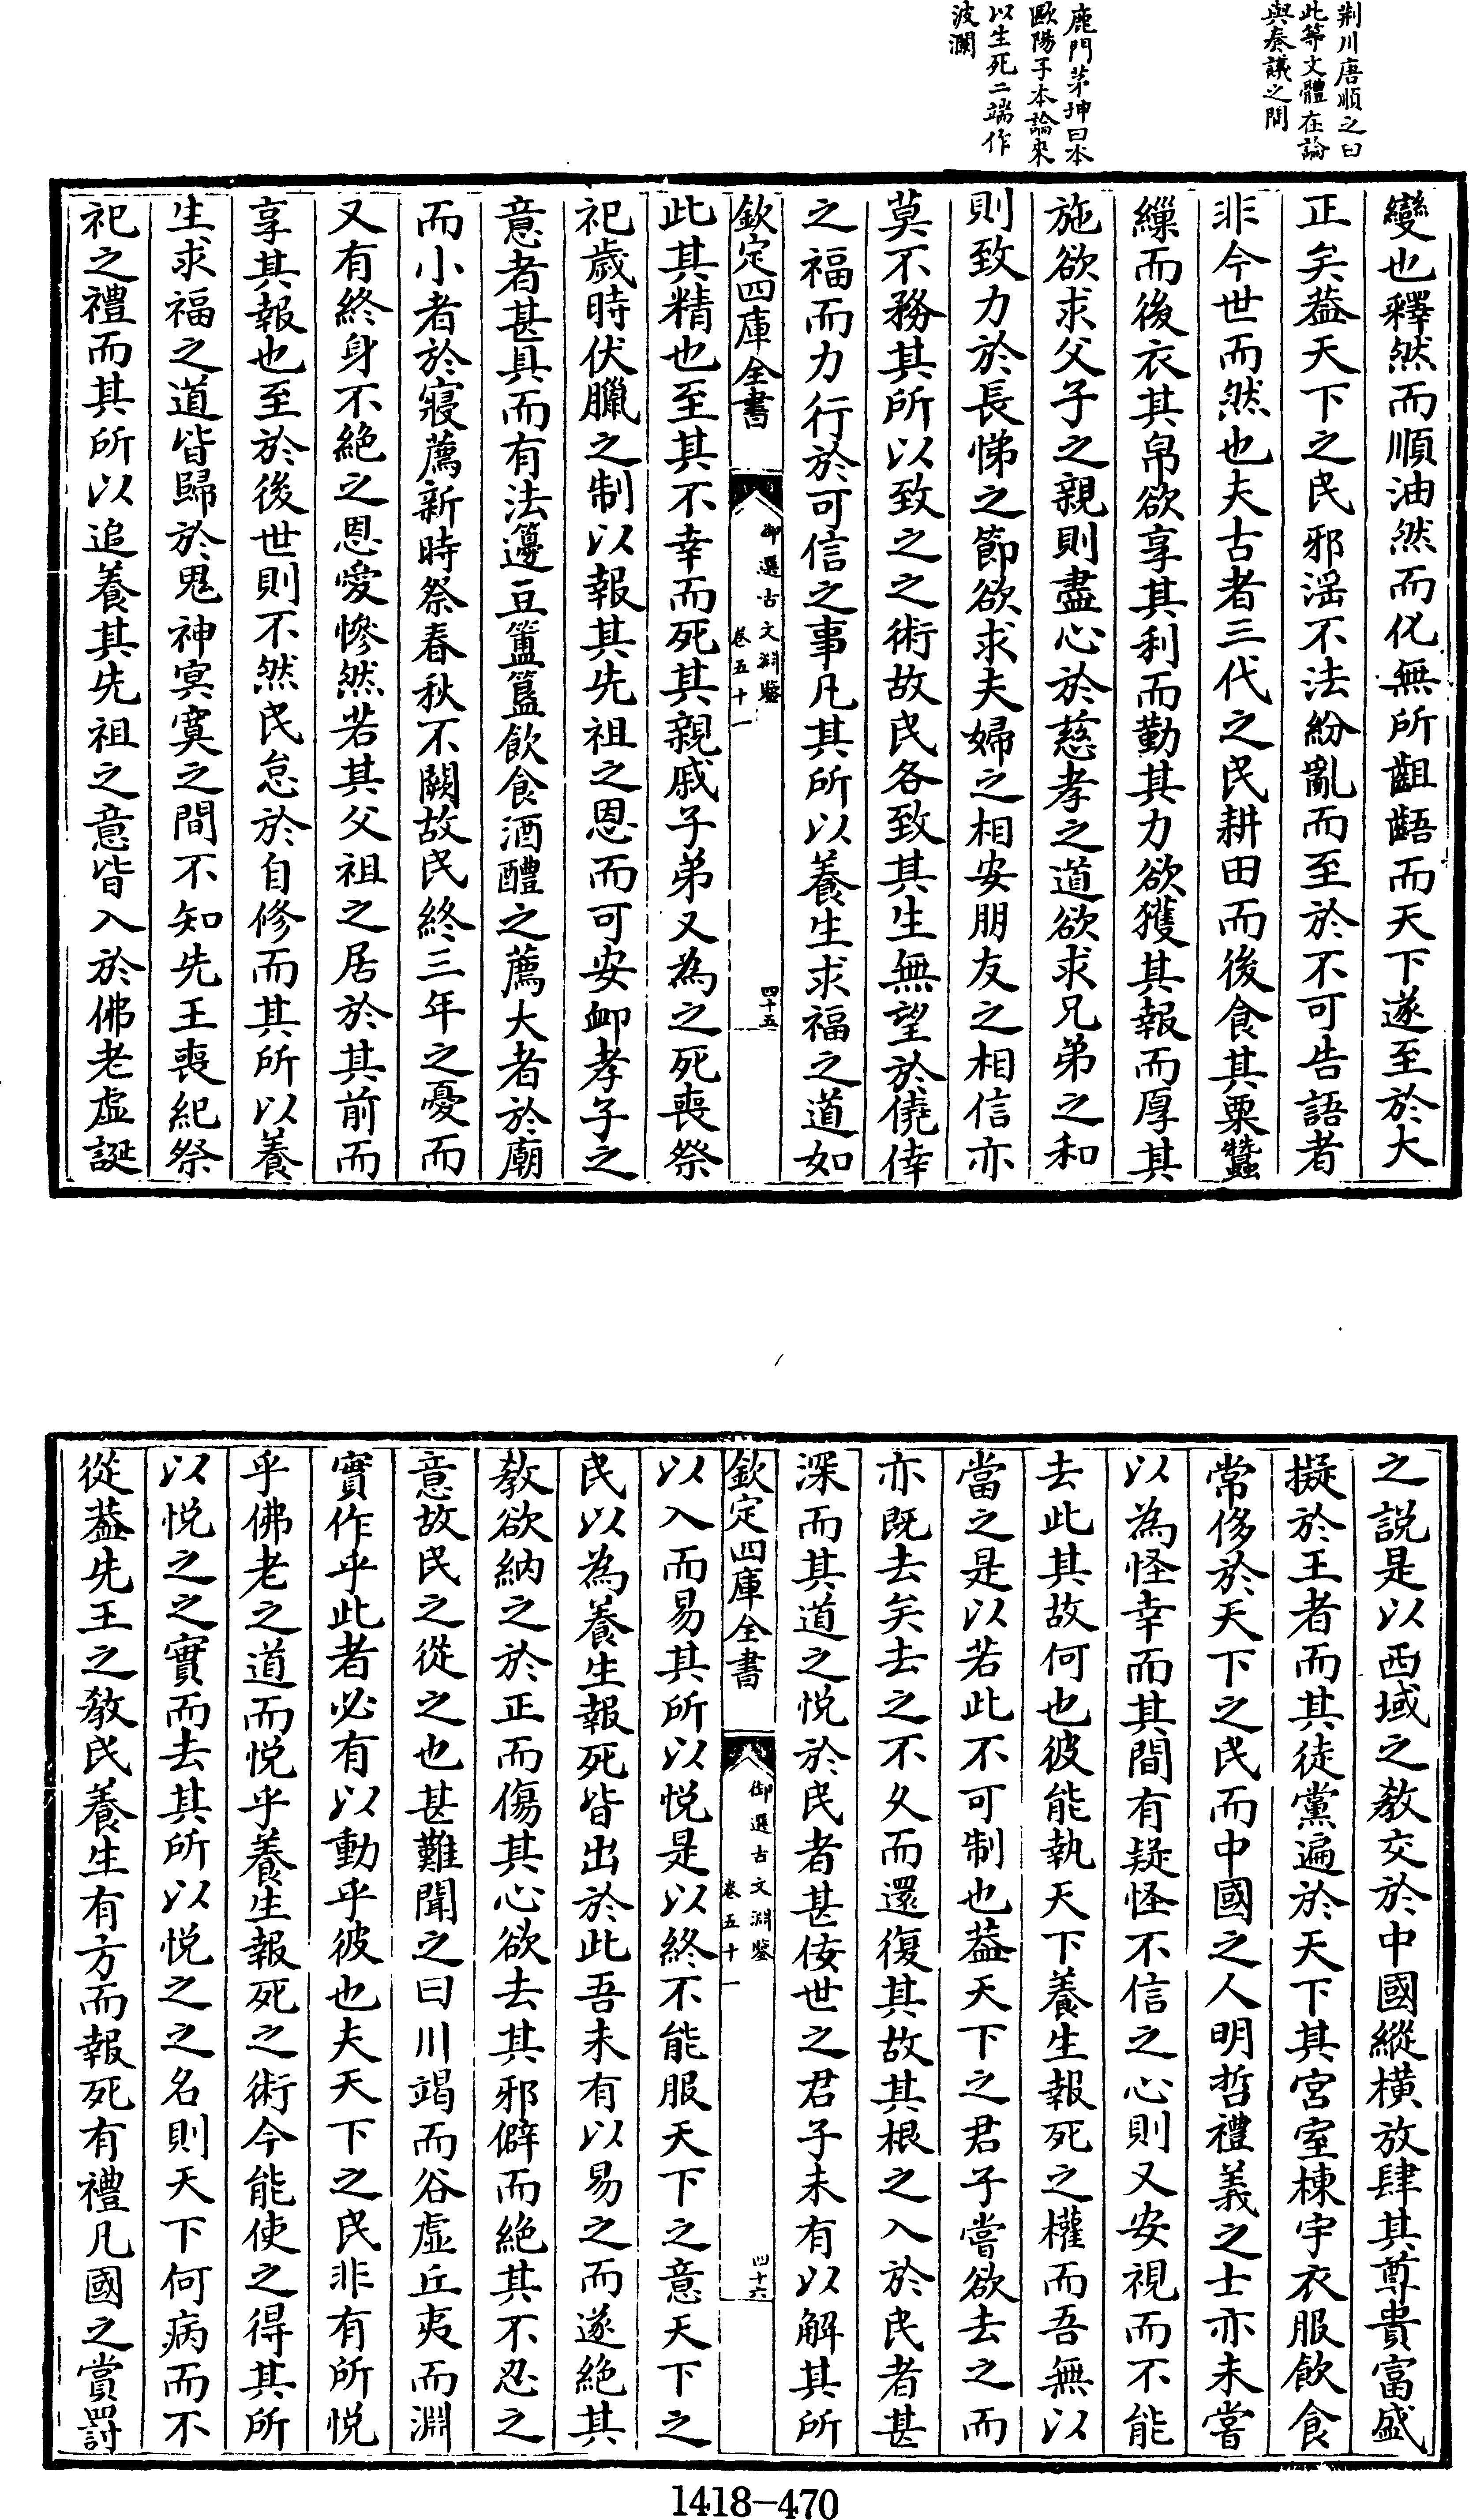 荆川唐順之曰
此等文體在論
與奏議之間
鹿門茅坤曰本
歐陽子本論來
以生死二端作
波瀾
變也釋然而順油然而化無所齟齬而天下遂至於大
正矣葢天下之民邪滛不法紛亂而至於不可告語者
非今世而然也夫古者三代之民耕田而後食其粟蠶
繅而後衣其帛欲享其利而勤其力欲獲其報而厚其
施欲求父子之親則盡心於慈孝之道欲求兄弟之和
則致力於長悌之節欲求夫婦之相安朋友之相信亦
莫不務其所以致之之術故民各致其生無望於僥倖
之福而力行於可信之事凡其所以養生求福之道如
欽定四庫全書
御選古文淵鑒
卷五十一
四十五
此其精也至其不幸而死其親戚子弟又為之死喪祭
祀歲時伏臘之制以報其先祖之恩而可安卹孝子之
意者甚具而有法籩豆簠簋飲食酒醴之薦大者於廟
而小者於寢薦新時祭春秋不闕故民終三年之憂而
又有終身不絕之恩愛慘然若其父祖之居於其前而
享其報也至於後世則不然民怠於自修而其所以養
生求福之道皆歸於鬼神冥寞之間不知先王喪紀祭
祀之禮而其所以追養其先祖之意皆入於佛老虛誕
之說是以西域之教交於中國縱橫放肆其尊貴富盛
擬於王者而其徒黨遍於天下其宮室棟宇衣服飲食
常侈於天下之民而中國之人明哲禮義之士亦未嘗
以為怪幸而其間有疑怪不信之心則又安視而不能
去此其故何也彼能執天下養生報死之權而吾無以
當之是以若此不可制也葢天下之君子嘗欲去之而
亦既去矣去之不久而還復其故其根之入於民者甚
深而其道之悅於民者甚佞世之君子未有以解其所
欽定四庫全書
御選古文淵鑒
卷五十一
四十六
以入而易其所以悅是以終不能服天下之意天下之
民以為養生報死皆出於此吾未有以易之而遂絕其
教欲納之於正而傷其心欲去其邪僻而絕其不忍之
意故民之從之也甚難聞之曰川竭而谷虛丘夷而淵
實作乎此者必有以動乎彼也夫天下之民非有所悅
乎佛老之道而悅乎養生報死之術今能使之得其所
以悅之之實而去其所以悅之之名則天下何病而不
從葢先王之教民養生有方而報死有禮凡國之賞罰
1418-470